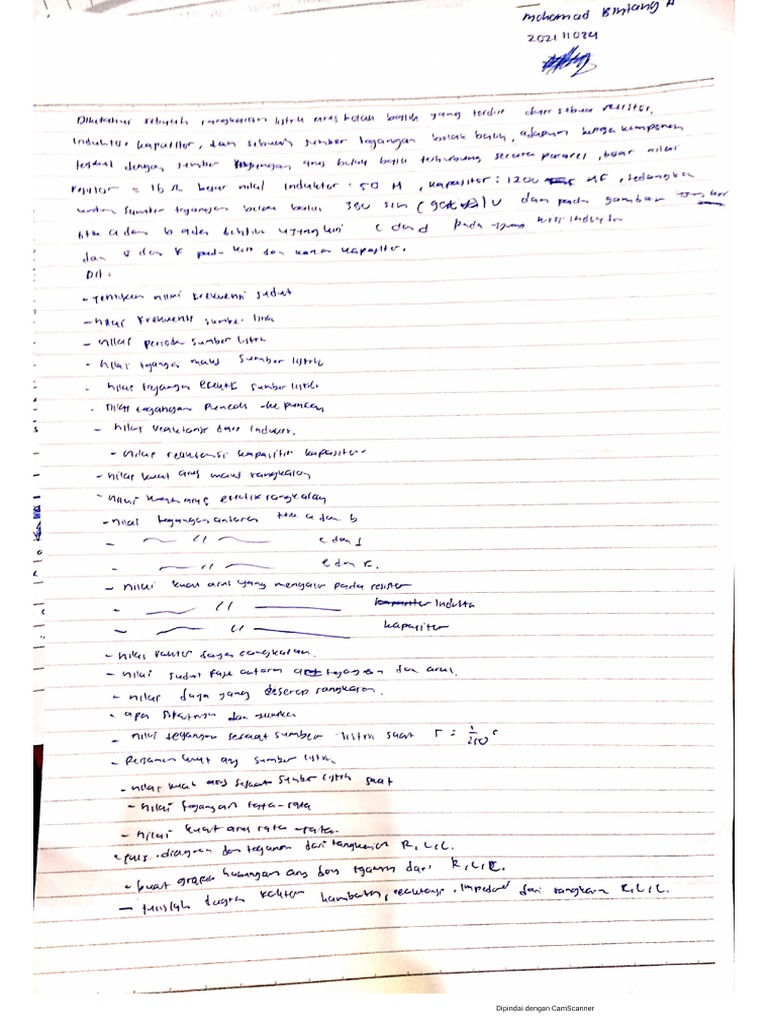 Mohamad Bintang A
202111034
Diketahui sebuah rangkaian listrik arus bolak balik yang terdiri dari sebuah resistor,
Induktor kapasitor, dan sebuah sumber tegangan bolak balik, adapun ketiga komponen
tersebut dengan sumber tegangan arus bolak balik terhubung secara pararel, besar nilai
resistor = 16 Ω besar nilai induktor : 50 H, kapasitor : 1200 MF, sedangkan
untuk sumber tegangan bolak balik 380 sin v dan pada gambar
titik a dan b ada ujung kiri c dan d pada ujung kiri induktor
dan kiri dan kanan kapasitor.
Dit :
- Tentukan nilai frekuensi sudut
- nilai frekuensi sumber listrik
- nilai perioda sumber listrik
- nilai tegangan maks sumber listrik
- nilai tegangan efektif sumber listrik
- nilai tegangan puncak - ke puncak
- nilai reaktansi dari induktor.
- nilai reaktansi kapasitif kapasitor
- nilai kuat arus maks rangkaian
- nilai kuat arus efektif rangkaian
- nilai tegangan antara titik a dan b
- // c dan d
- // e dan f.
- nilai kuat arus yang mengalir pada resistor
- // Indukto
- // kapasitor
- nilai faktor daya rangkaian.
- nilai sudut fase antara tegangan dan arus.
- nilai daya yang diserap rangkaian.
- apa dan
- nilai tegangan sesaat sumber listrik saat T = 1/250 s
- Persamaan kuat arus sumber listrik
- nilai kuat arus sesaat sumber listrik saat
- nilai tegangan rata-rata
- nilai kuat arus rata-rata.
- diagram dan tegangan dari rangkaian R, L, C.
- buat grafik hubungan arus dan tegangan dari R, L, C.
- diagram hambatan, reaktansi, impedansi dari rangkaian R, L, C.
Dipindai dengan CamScanner